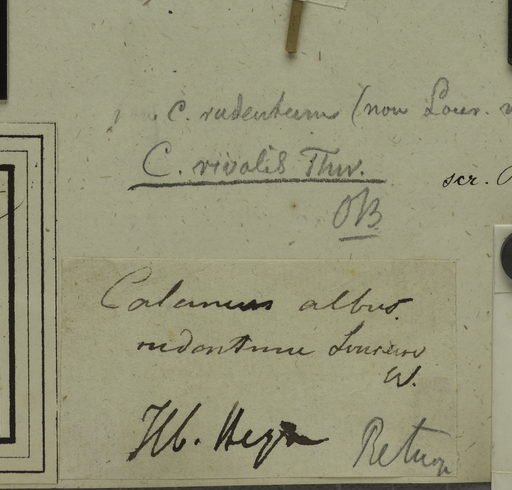 C. rudentum (non Lour.
C. rivalis Thw.
scr.
OB
Calamus albus
rudentum Loureiro
W.
Hb. Heyn